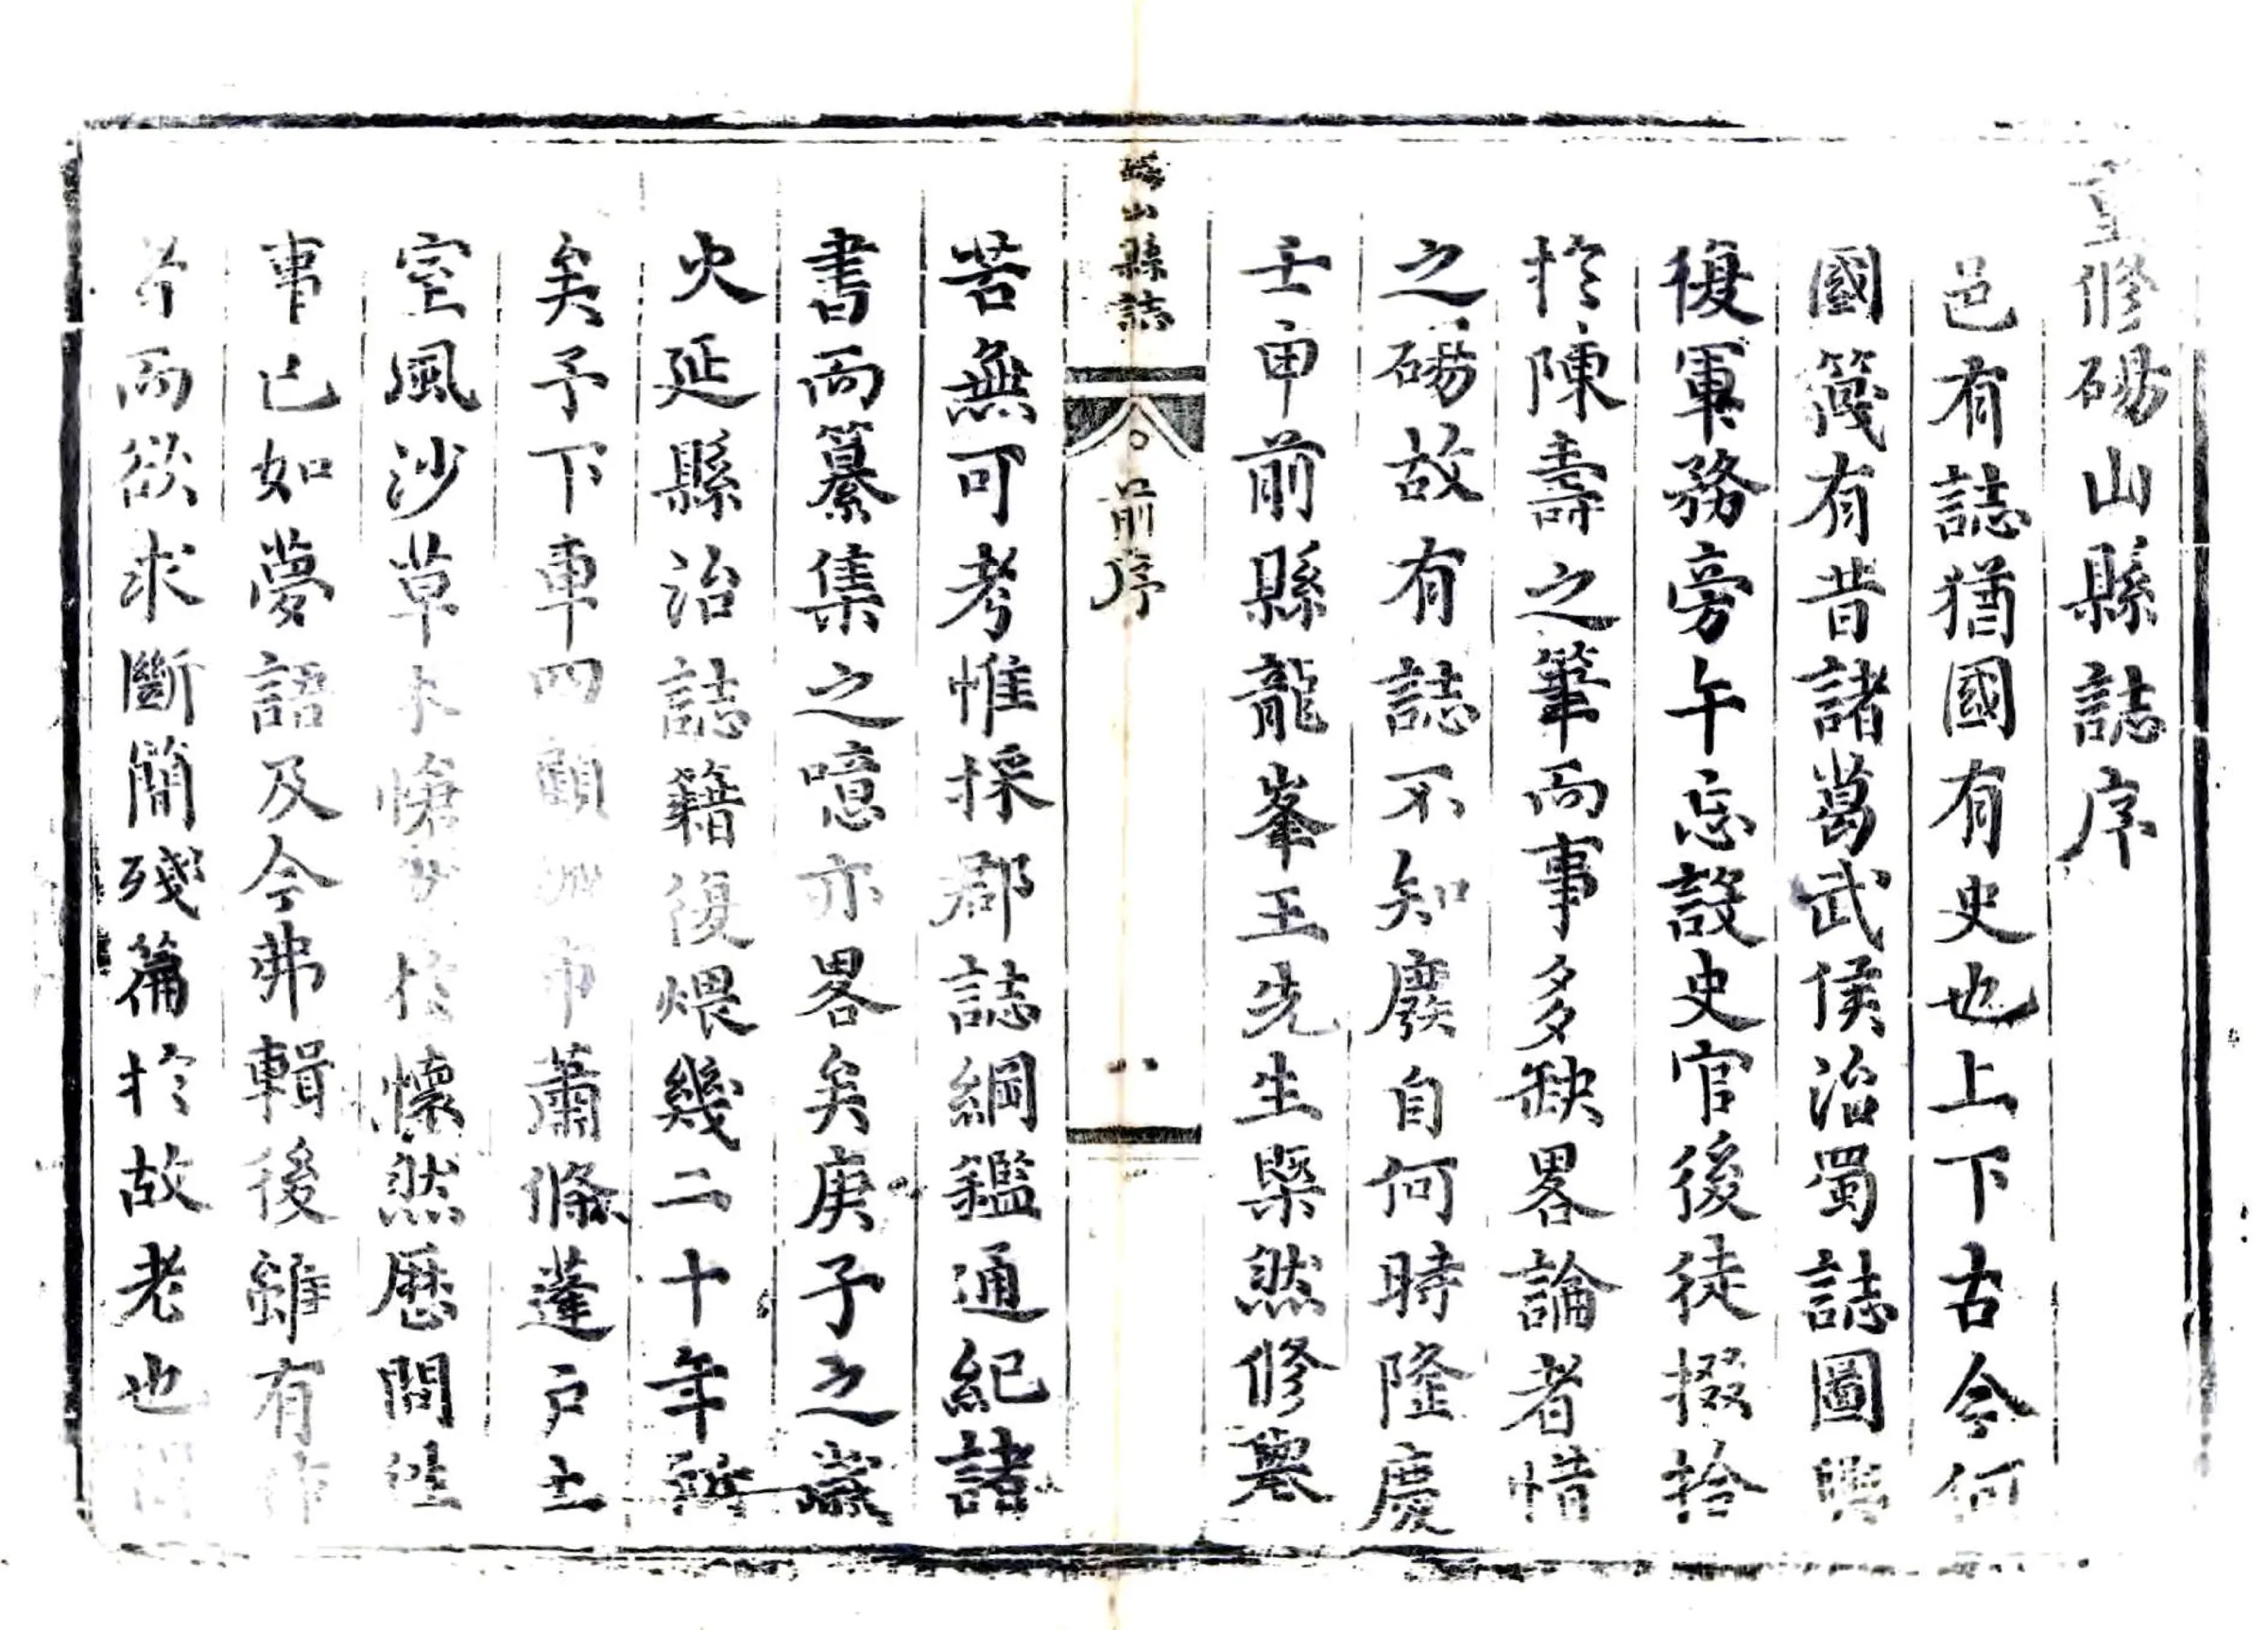 重修碭山縣誌序
邑有誌猶國有史也上下古今何
國箋有昔諸葛武侯治蜀誌圖
復軍務旁午忘設史官後徒掇拾
於陳壽之筆而事多缺畧論者惜
之碭故有誌不知廢自何時隆慶
壬申前縣龍峯王先生槩然修舉
碭山縣誌 前序 八
苦無可考惟採郡誌綱鑑通紀諸
書而纂集之噫亦畧矣庚子之歲
火延縣治誌籍復煨幾二十年
矣予下車四顧 市蕭條蓬戶土
室風沙草木 於懷然歷問
事已如夢語及今弗輯後雖有作
者而欲求斷簡殘篇於故老也